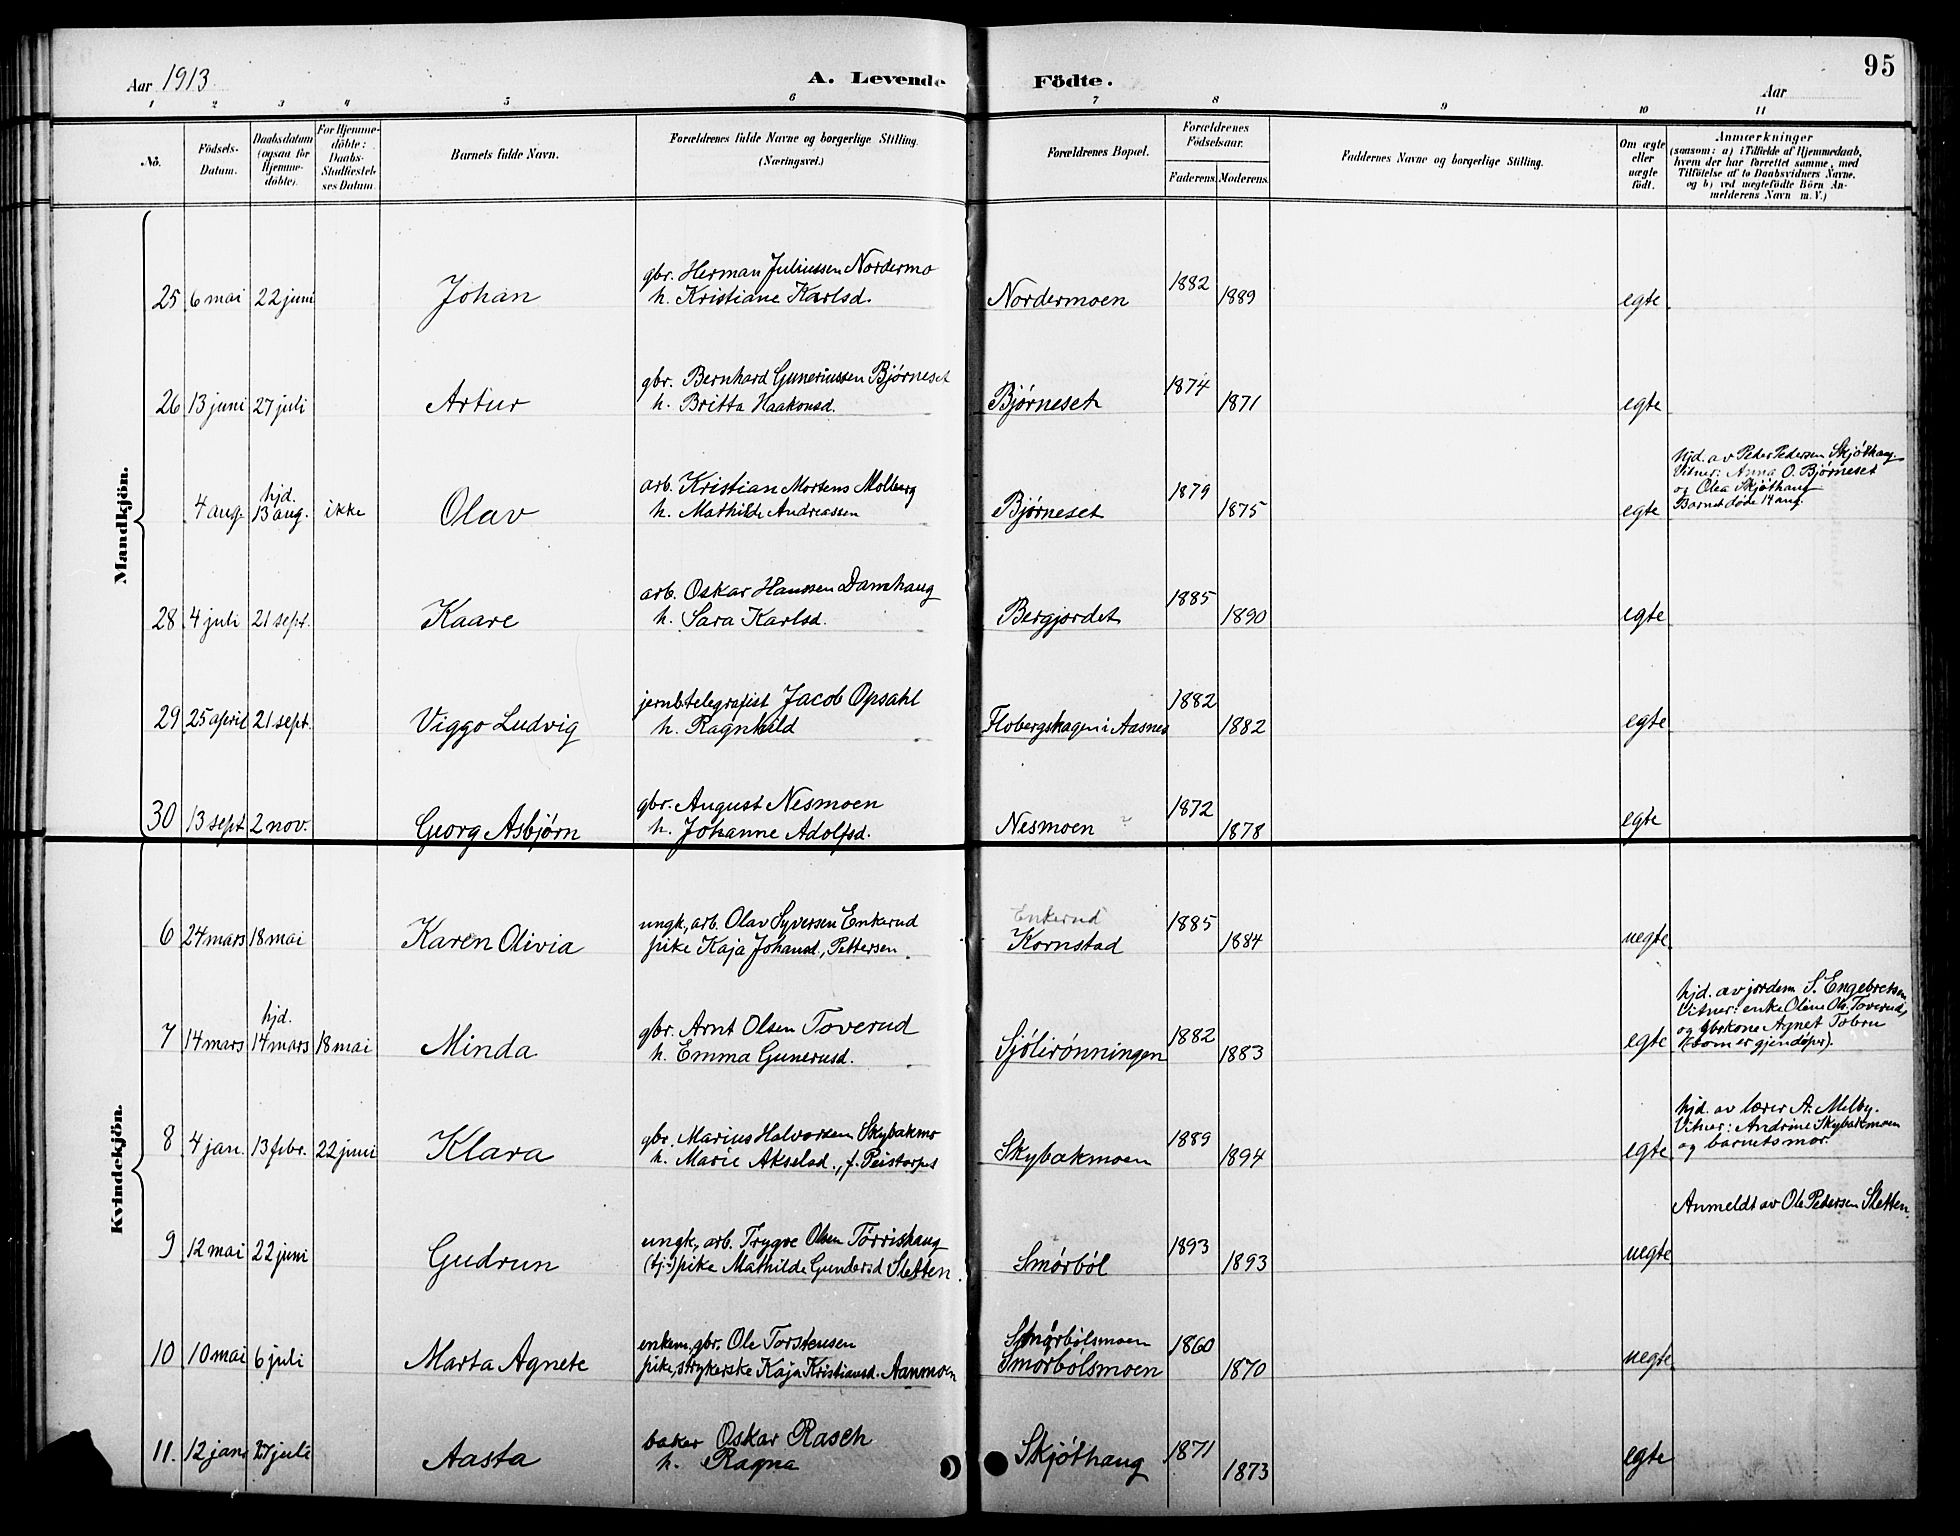 95
Aar 1913. A. Levende Födte. Aar
1 2 3 4 5 6 7 8 9 10 11
No. Födsels-Datum. Daabsdatum (ogsaa for Hjemmedöbte). For Hjemmedöbte: Daabs-Stadfæstelses Datum. Barnets fulde Navn. Forældrenes fulde Navne og borgerlige Stilling. (Næringsvei.) Forældrenes Bopæl. Forældrenes Födselsaar. Faderens. Moderens. Faddernes Navne og borgerlige Stilling. Om ægte eller uægte födt. Anmærkninger
(saasom: a) i Tilfælde af Hjemmedaab,
hvem der har forrettet samme, med
Tilföielse af to Daabsvidners Navne,
og b) ved uægtefödte Börn Anmelderens Navn m. V.)
Mandkjön.
gbr. Herman Juliussen Nordermo 1882
25 6 mai 22 juni Johan h. Kristiane Karlsd. Nordermoen 1889 egte
gbr. Bernhard Guneriussen Bjørneset 1874
26 13 juni 27 juli Artur h. Britta Haakonsd. Bjørneset 1871 egte
hjd. av Peder Pedersen Skjøthaug.
Vitner: Anna O. Bjørneset
hjd. arb. Kristian Mortens Molberg 1879 og Olea Skjøthaug
4 aug. 13 aug. ikke Olav h. Mathilde Andreassen Bjørneset 1875 egte Barnet døde 14 aug.
arb. Oskar Hanssen Damhaug 1885
28 4 juli 21 sept. Kaare h. Sara Karlsd. Bergjordet 1890 egte
jernb.telegrafist Jacob Opsahl 1882
29 25 april 21 sept. Viggo Ludvig h. Ragnhild Flobergshagen i Aasnes 1882 egte
gbr. August Nesmoen 1872
30 13 sept. 2 nov. Georg Asbjørn h. Johanne Adolfsd. Nesmoen 1878 egte
Kvindekjön.
ungk., arb. Olav Syversen Enkerud Enkerud 1885
6 24 mars 18 mai Karen Olivia pike Kaja Johansd., Pettersen Kornstad 1884 uegte
hjd. av jordem S. Engebretsen,
Vitner: enke Oline Ols. Toverud,
hjd. gbr. Arnt Olsen Toverud 1882 og gbrkone Agnet Tobru
7 14 mars 14 mars 18 mai Minda h. Emma Gunerusd. Sjølirønningen 1883 egte (som er gjendøper).
hjd. av lærer A. Melby.
gbr. Marius Halvorsen Skybakmo 1889 Vitner: Andrine Skybakmoen
8 4 jan. 13 febr. 22 juni Klara h. Marie Akselsd., f. Peistorpet Skybakmoen 1894 egte og barnets mor.
Anmeldt av Ole Pedersen Sletten.
ungk., arb. Trygve Olsen Tørrishaug 1893
9 12 mai 22 juni Gudrun (tj.-)pike Mathilde Gundersd Sletten Smørbøl 1893 uegte
enkem. gbr. Ole Torstensen Smørbølsmoen 1860
10 10 mai 6 juli Marta Agnete pike, strykerske Kaja Kristiansd. Aanmoen Smørbølsmoen 1870 uegte
baker Oskar Rasch 1871
11. 12 jan. 27 juli Aasta h. Ragna Skjøthaug 1873 egte